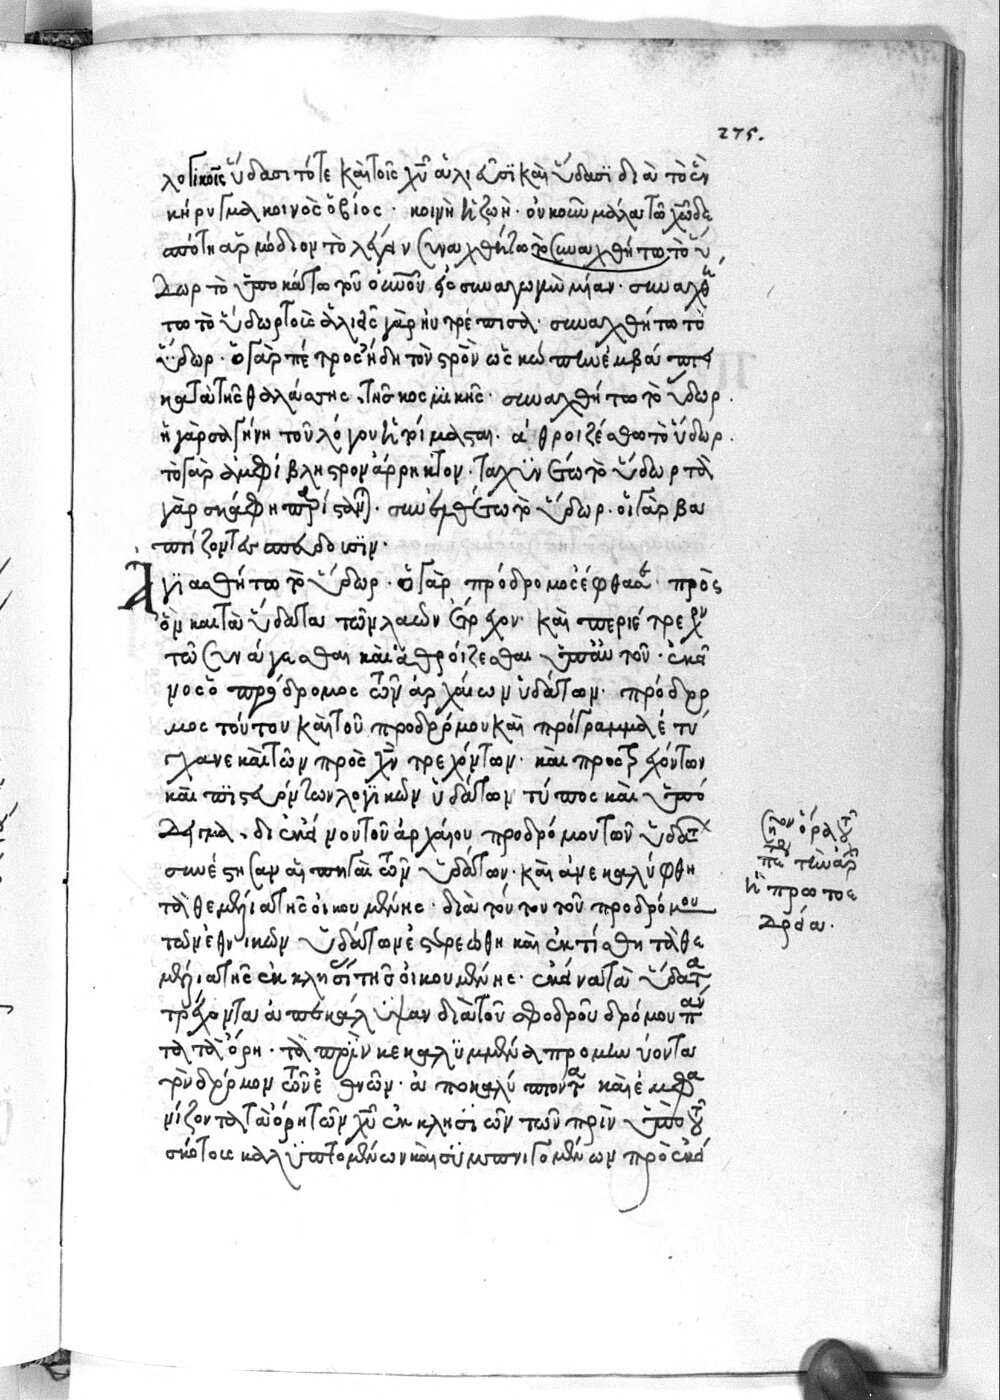 275.
λογικοῖς ὕδασι τότε καὶ τοῖς χῦ ἁλιεῦσϊ καὶ ὕδασϊ διὰ τὸ ἓν
κήρυγμα κοινὸς ὁ βίος · κοινὴ ἡ ζωή · οὐκοῦν μάλα τῶ
τὸ λέγειν συναχθήτω τὸ συναχθήτω τὸ ὕ
δωρ τὸ ὑποκάτω τοῦ οὐνοῦ εἰς συναγωγὴν μίαν · συναχθή
τω τὸ ὕδωρ τοῖς ἁλιεῦσϊ γὰρ ηὐτρέπισα · συναχθήτω τὸ
ὕδωρ · ὁ γὰρ πέτρος ἤδη τὸν
κατὰ τῆς θαλάσσης τῆς κοσμϊκῆς · συναχθήτω τὸ ὕδωρ ·
ἡ γὰρ σαγήνη τοῦ λόγου ἡτοίμασται · ἀθροιζέσθω τὸ ὕδωρ ·
τὸ γὰρ ἀμφίβληστρον ἄρρηκτον · ταχϋνέσθω τὸ ὕδωρ τὰ
γὰρ σκάφη · συνερχέσθω τὸ ὕδωρ · οἱ γὰρ βα
πτίζοντες σπεύδουσϊν ·
Ἁγϊασθήτω τὸ ὕδωρ · ὁ γὰρ πρόδρομος ἔφθασε · πρὸς
ὃν καὶ τὰ ὕδατα τῶν λαῶν ἔτρεχον · καὶ περιέτρεχον
τοῦ συνάγεσθαι καὶ ἀθροίζεσθαι ὑπ' αὐτοῦ · ἐκεῖ
νος ὁ πρόδρομος τῶν ἀρχαίων ὑδάτων · πρόδρο
μος τούτου καὶ τοῦ προδρόμου καὶ πρόγραμμα ἐτύ
χανε καὶ τῶν πρὸς χν τρεχόντων · καὶ προστρεχόντων
καὶ πϊστευόντων λογϊκῶν ὑδάτων τύπος καὶ ὑπό
δειγμα · δι' ἐκείνου τοῦ ἀρχαίου προδρόμου τῶν ὑδάτ
συνέστησαν αἱ πηγαὶ τῶν ὑδάτων · καὶ ἀνεκαλύφθη
τὰ θεμέλια τῆς οἰκουμένης · διὰ τούτου τοῦ προδρόμου
τῶν ἐθνικῶν ὑδάτων ἐστερεώθη καὶ ἐκτίσθη τὰ θε
μέλια τῆς ἐκκλησίας τῆς οἰκουμένης · ἐκεῖνα τὰ ὕδατα
τρέχοντα ἀπεκάλϋψαν διὰ τοῦ σφοδροῦ δρόμου
τὰ τὰ ὄρη · τὰ πρϊν κεκαλϋμμένα προμηνύοντα
τὸν δρόμον τῶν ἐθνῶν · ἀποκαλύπτοντα καὶ ἐμφα
νίζοντα τὰ ὄρη τῶν χῦ ἐκκλησϊῶν τῶν πρὶν ὑπὸ τοῦ
σκότους καλϋπτομένων καὶ συμπνιγομένων πρὸς ἐκεῖ
ἡ πρώτος